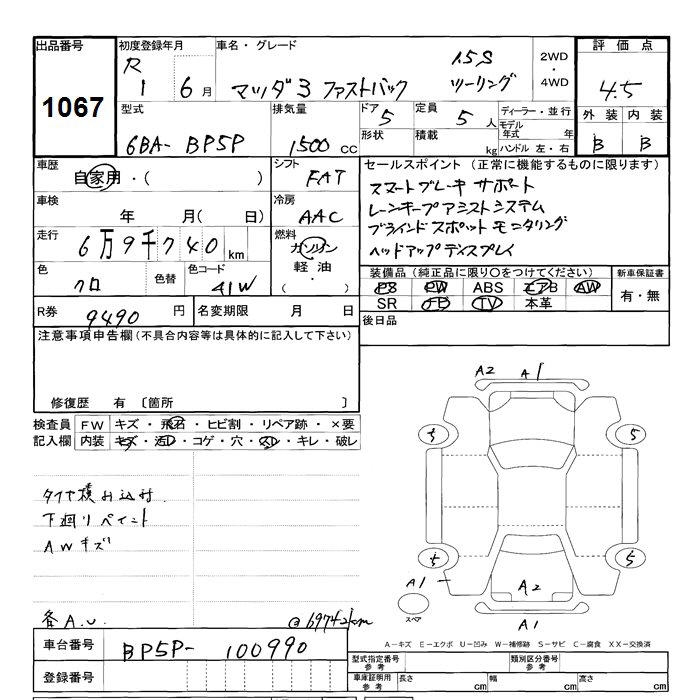 出品番号 初度登録年月 車名・グレード 評価点
1067 R1 6月 マツダ3 ファストバック 1.5S ツーリング 2WD・4WD 4.5
型式 排気量 ドア 5 定員 5人 ディーラー・並行 外装 内装
6BA- BP5P 1500cc 形状 積載 kg モデル年式 年 ハンドル 左・右 B B
車歴 自家用・( ) シフト FAT セールスポイント(正常に機能するものに限ります)
スマートブレーキ サポート
車検 年 月( 日) 冷房 AAC レーンキープアシストシステム
ブラインドスポットモニタリング
走行 6万9千740km 燃料 ガソリン 軽油・( ) ヘッドアップディスプレイ
色 クロ 色替 色コード 41W 装備品(純正品に限り○をつけてください) 新車保証書
PS PW ABS エアB AW 有・無
SR ナビ TV 本革
R券 9490円 名変期限 月 日 後日品
注意事項申告欄(不具合内容等は具体的に記入して下さい)
修復歴 有 〔箇所 〕
検査員 FW キズ・飛石・ヒビ割・リペア跡・×要
記入欄 内装 キズ・汚レ・コゲ・穴・スレ・キレ・破レ
A2 A1
5 5
タイヤ積み込み
下廻りペイント
AWキズ
5 5
A1 A2
スペア
各A.U. @69742km A1
A−キズ E−エクボ U−凹み W−補修跡 S−サビ C−腐食 XX−交換済
車台番号 BP5P- 100990
型式指定番号 参考 類別区分番号 参考
登録番号 車庫証明用 参考 長さ cm 幅 cm 高さ cm